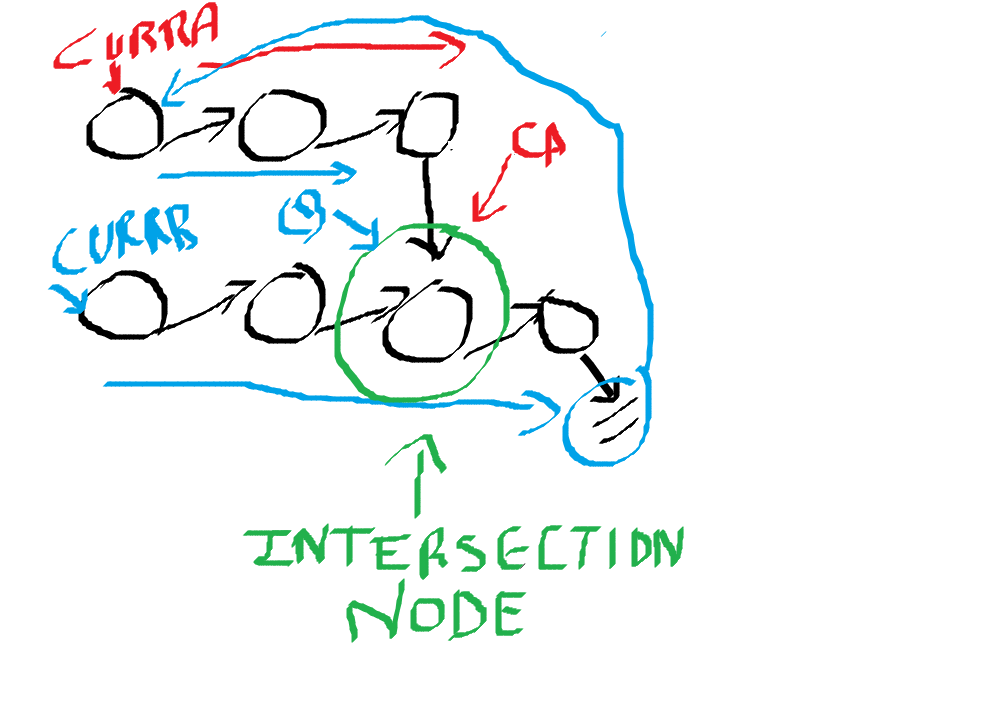 CURRA
CA
CB
CURRB
INTERSECTION
NODE